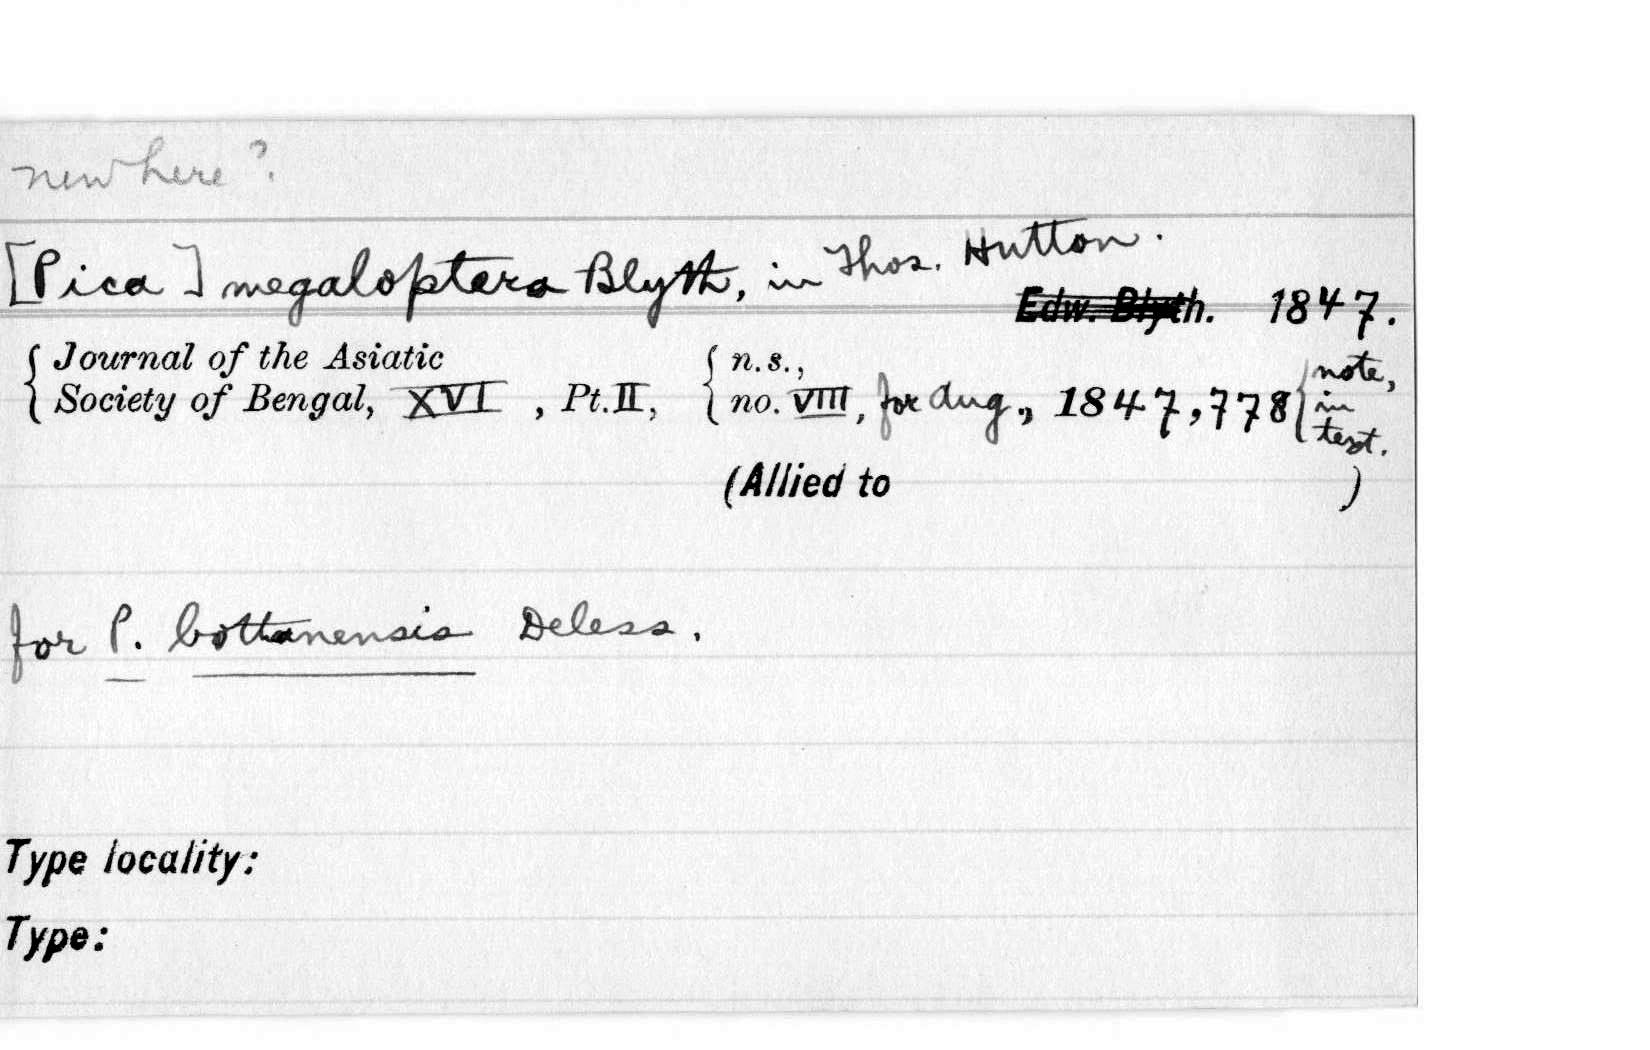 new here?
[Pica] megaloptera Blyth, in Thos. Hutton.
Edw. Blyth. 1847.
{ Journal of the Asiatic { n.s., { note,
Society of Bengal, XVI, Pt. II, no. VIII, for Aug., 1847, 778 in
text.
(Allied to )
for P. bottanensis Deless.
Type locality:
Type: